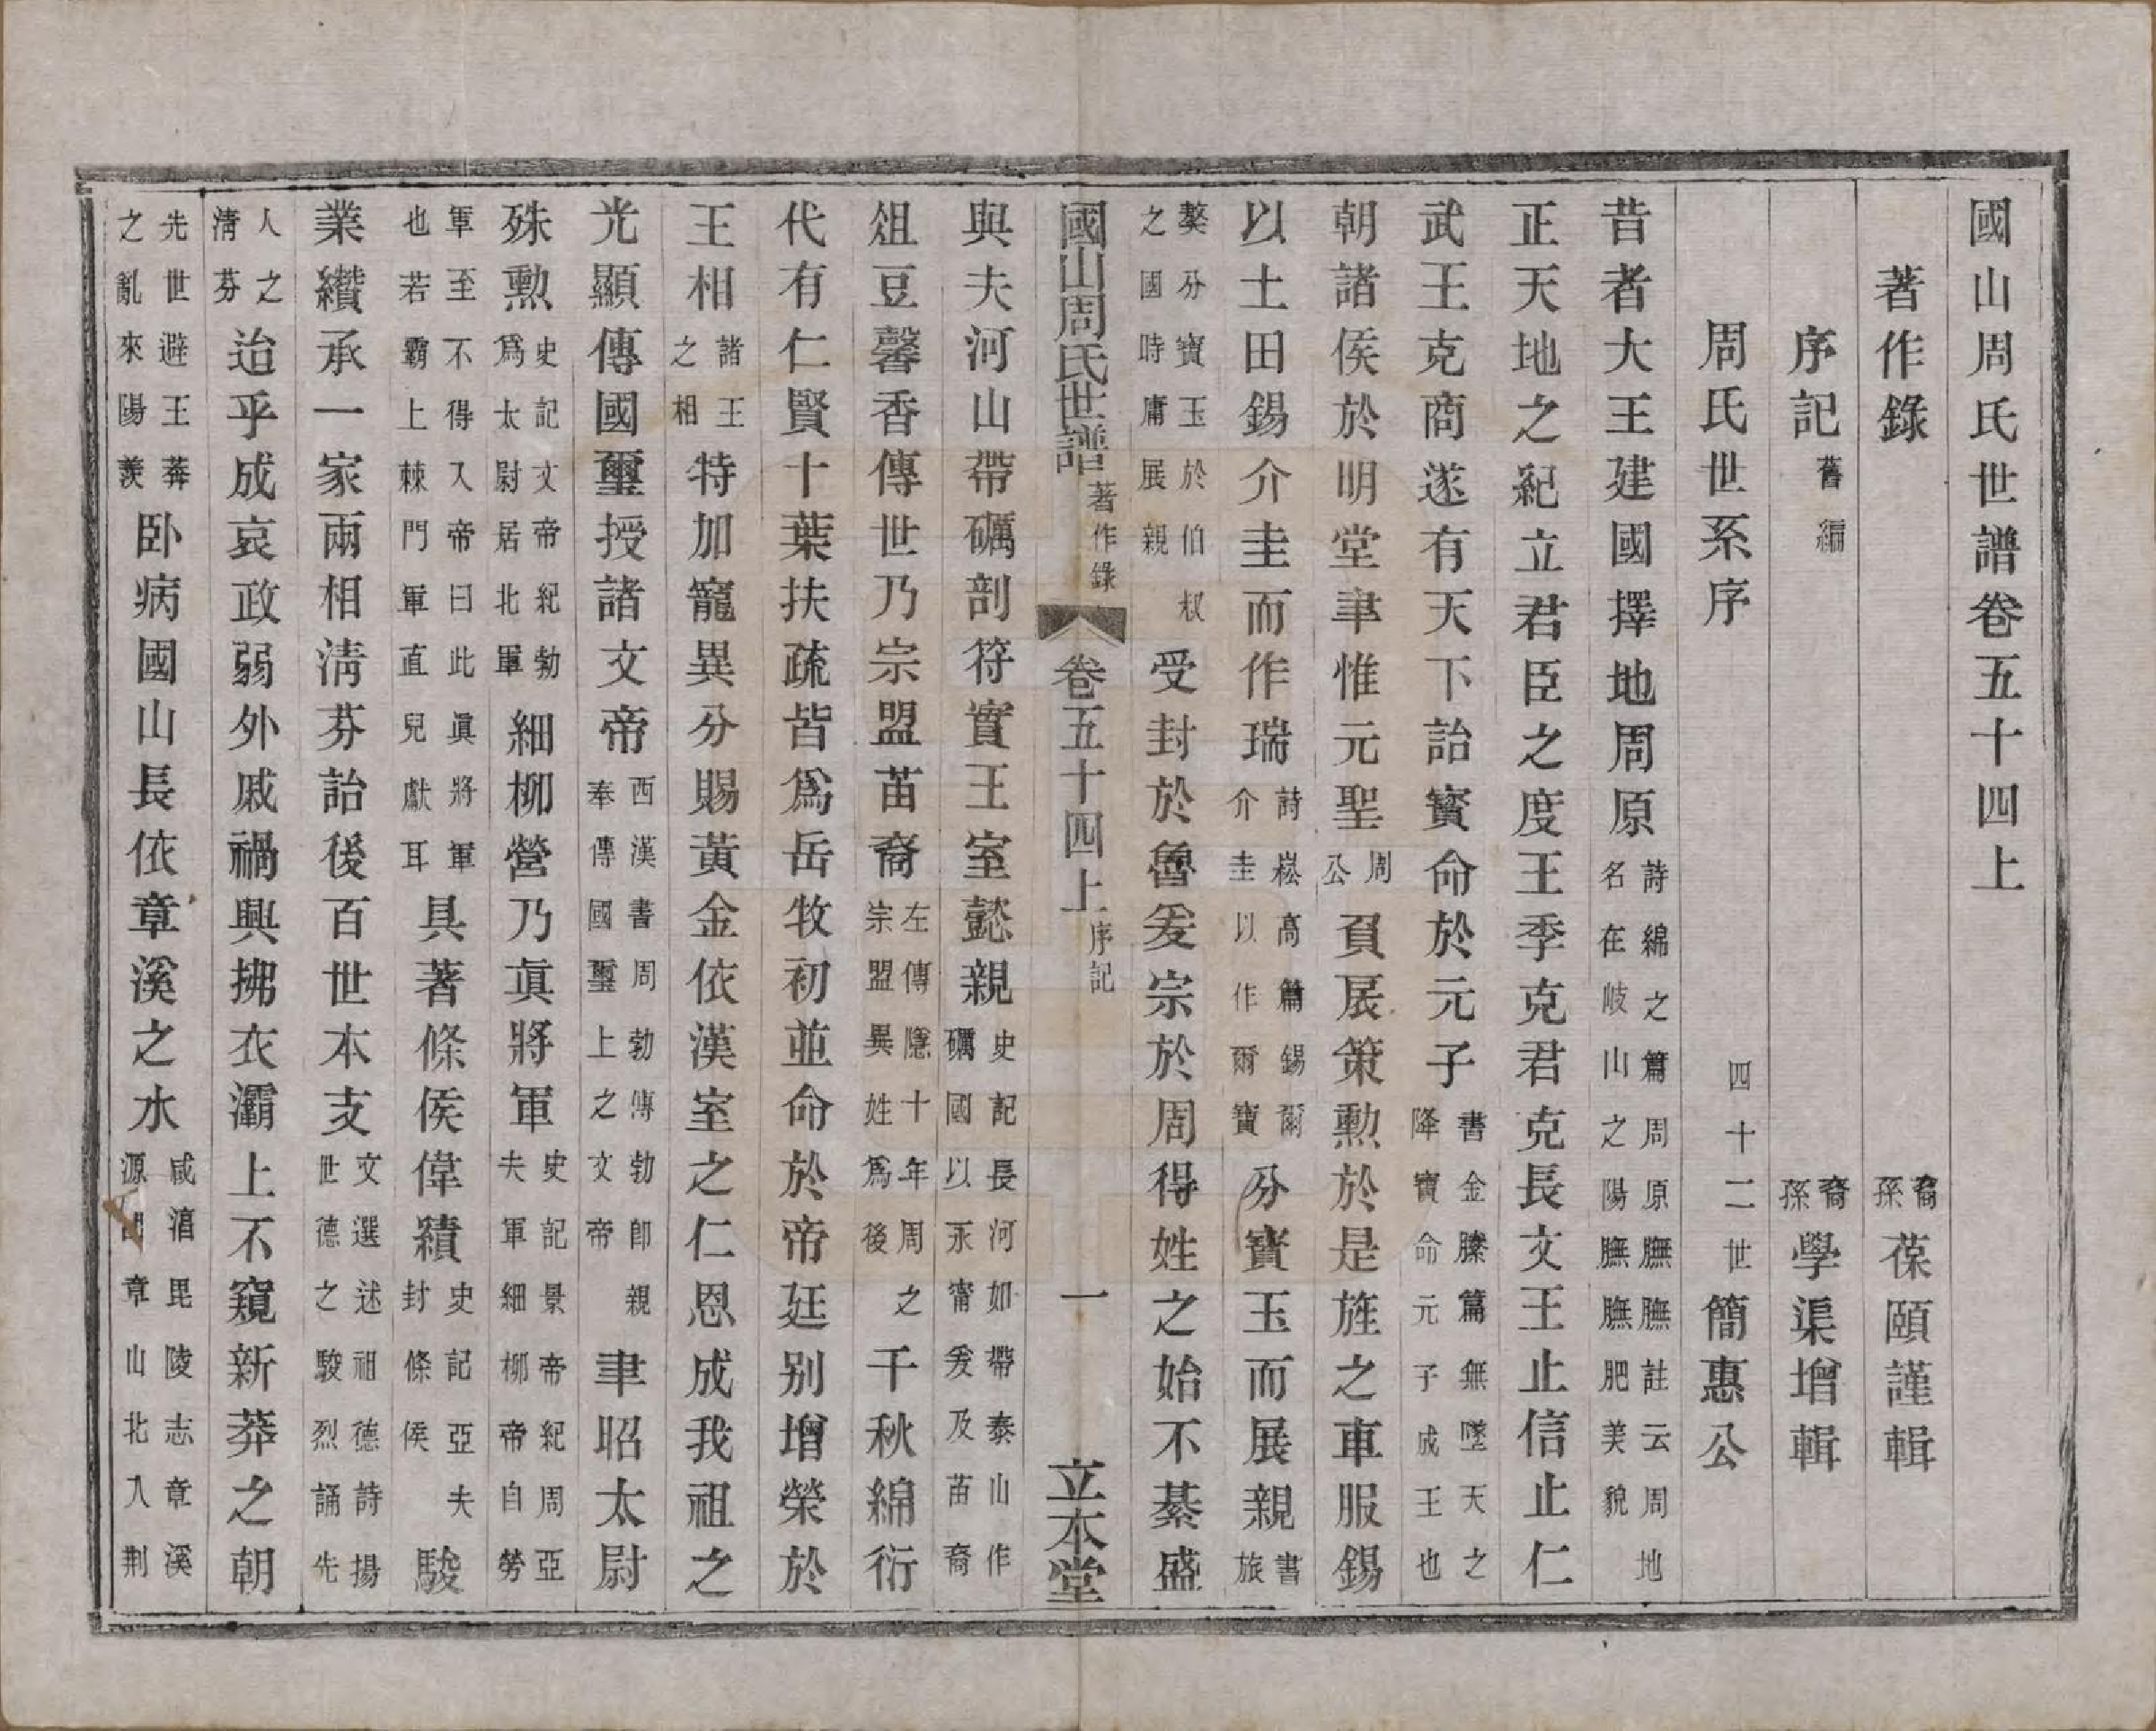 國山周氏世譜卷五十四上
著作錄 裔孫葆頤謹輯
序記舊編 裔孫學渠增輯
周氏世系序 四十二世簡惠公
昔者大王建國擇地周原詩綿之篇周原膴膴註云周地名在岐山之陽膴膴肥美貌
正天地之紀立君臣之度王季克君克長文王止信止仁
武王克商遂有天下詒寳命於元子書金縢篇無墜天之降寶命元子成王也
朝諸侯於明堂聿惟元聖周公負扆策勲於是旌之車服錫
以土田錫介圭而作瑞詩崧高篇錫爾介圭以作爾寶分寳玉而展親書旅
獒分寶玉於伯叔之國時庸展親受封於魯爰宗於周得姓之始不綦盛
國山周氏世譜 著作錄 卷五十四上 序記 一 立本堂
與夫河山帶礪剖符實王室懿親史記長河如帶泰山作礪國以永甯爰及苗裔
俎豆馨香傳世乃宗盟苗裔左傳隱十年周之宗盟異姓爲後千秋綿衍
代有仁賢十葉扶疏皆爲岳牧初並命於帝廷别增榮於
王相諸王之相特加寵異分賜黃金依漢室之仁恩成我祖之
光顯傳國璽授諸文帝西漢書周勃傳勃卽親奉傳國璽上之文帝聿昭太尉
殊勲史記文帝紀勃爲太尉居北軍細柳營乃眞將軍史記景帝紀周亞夫軍細柳帝自勞
軍至不得入帝曰此眞將軍也若霸上棘門軍直兒戲耳具著條侯偉績史記亞夫封條侯駿
業纘承一家兩相清芬詒後百世本支文選述祖德詩揚世德之駿烈誦先
人之清芬迨乎成哀政弱外戚禍興拂衣灞上不窺新莽之朝
先世避王莽之亂來陽羨卧病國山長依章溪之水咸淳毘陵志章溪源出章山北入荆